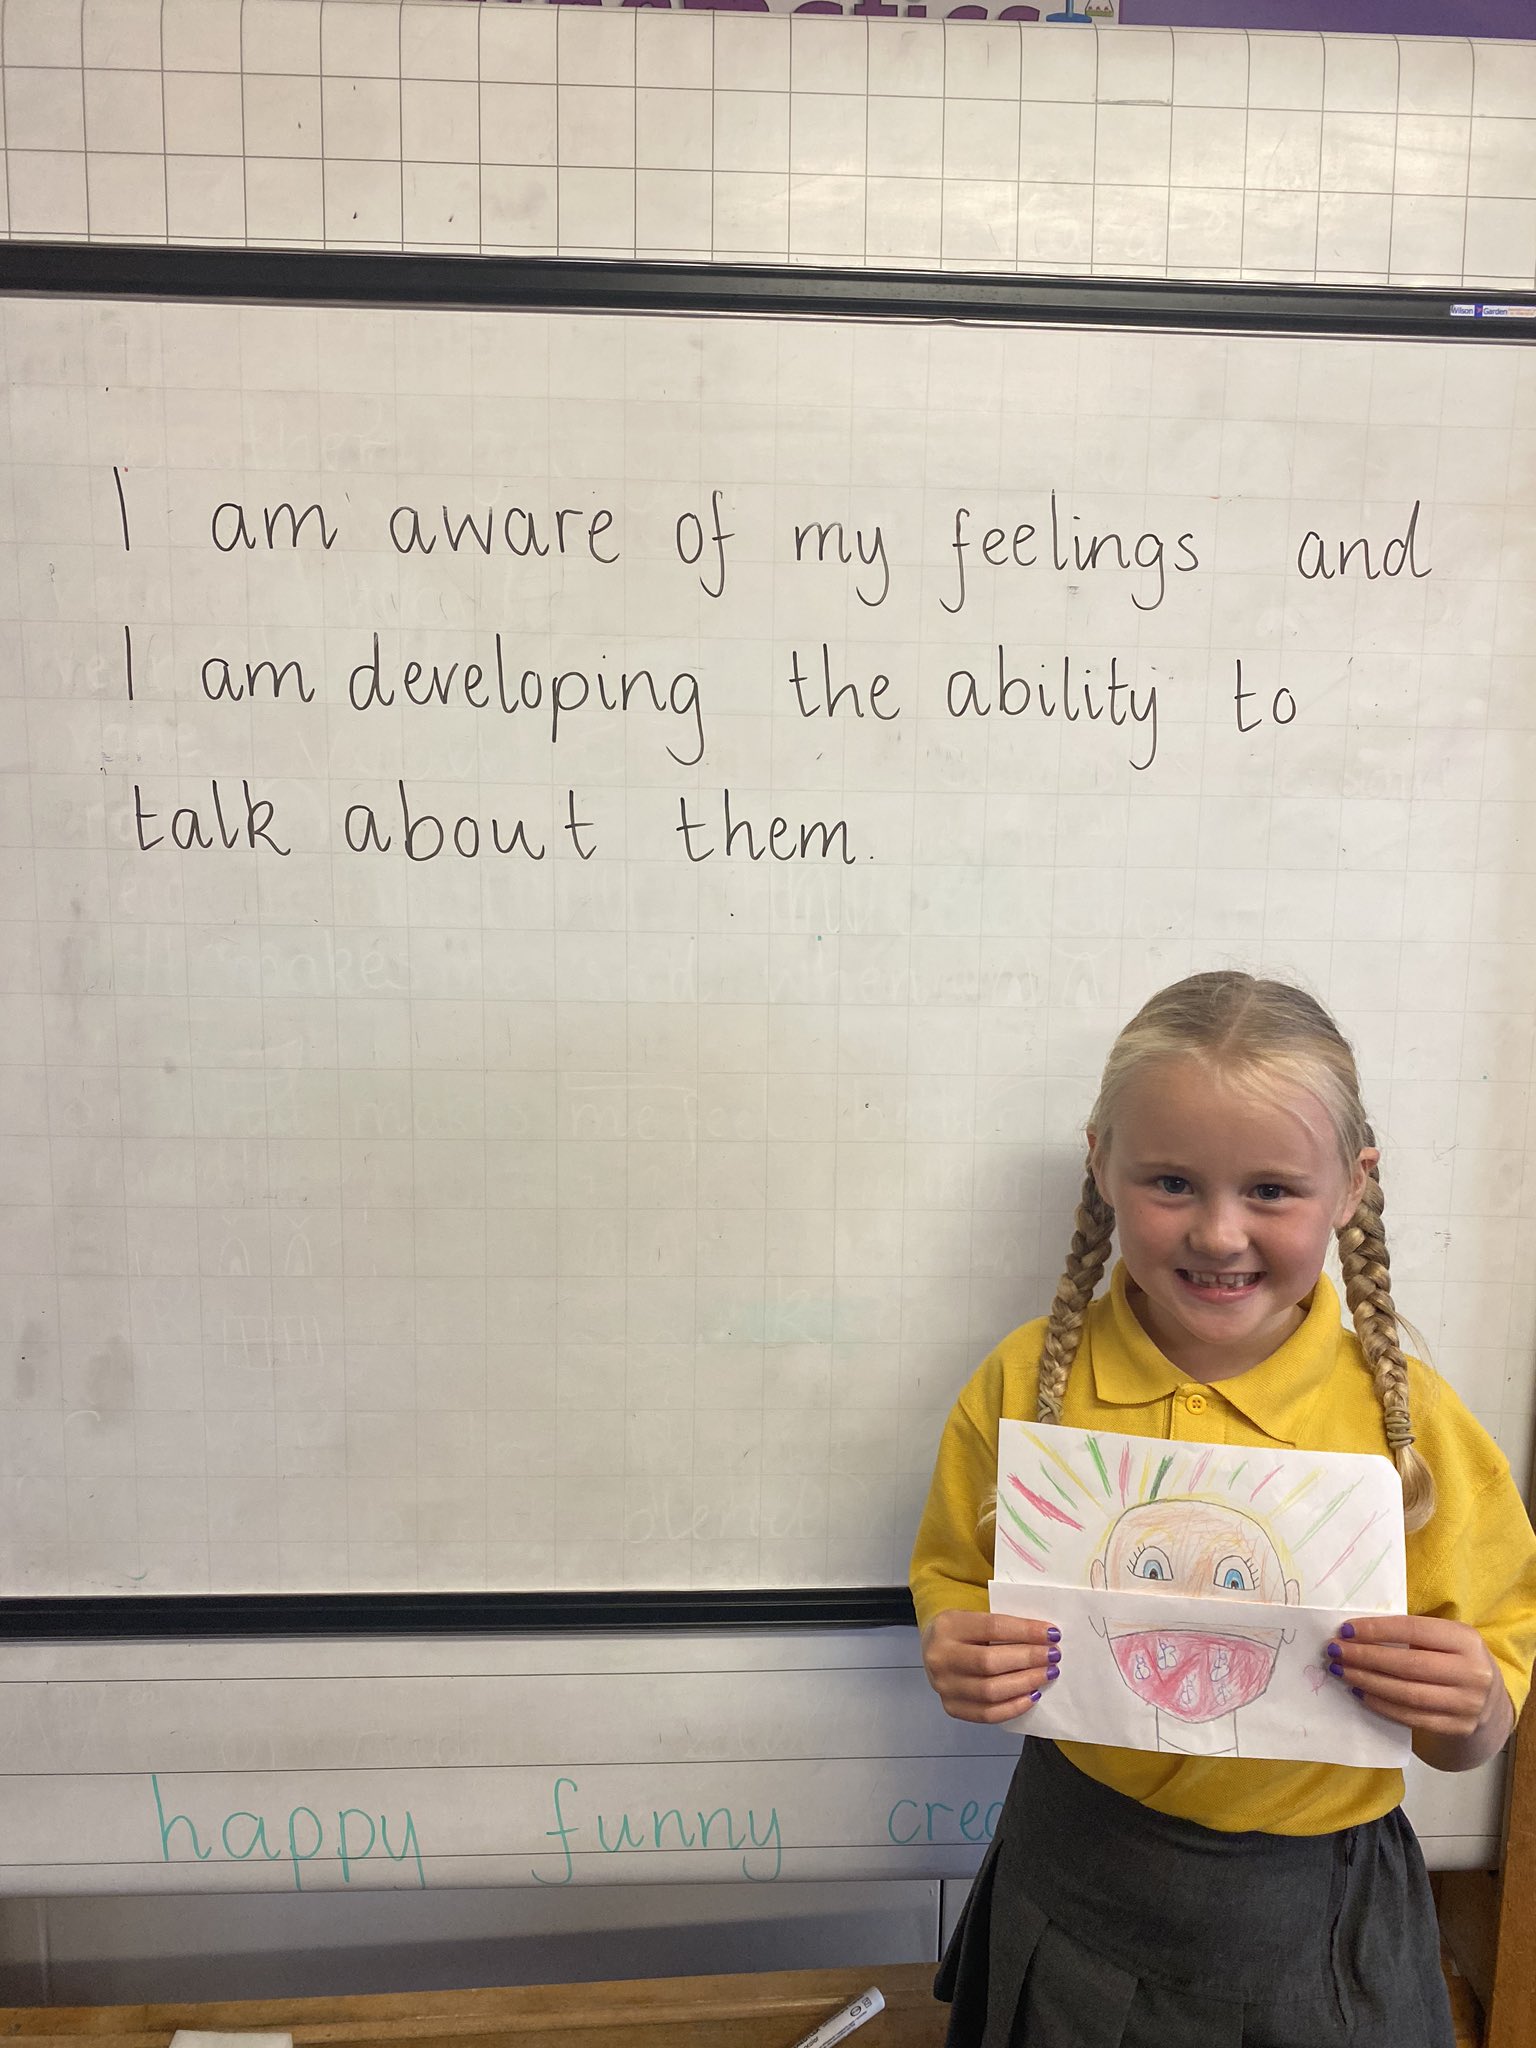 Mathematics
Wilson Garden
I am aware of my feelings and
I am developing the ability to
talk about them.
happy funny crea